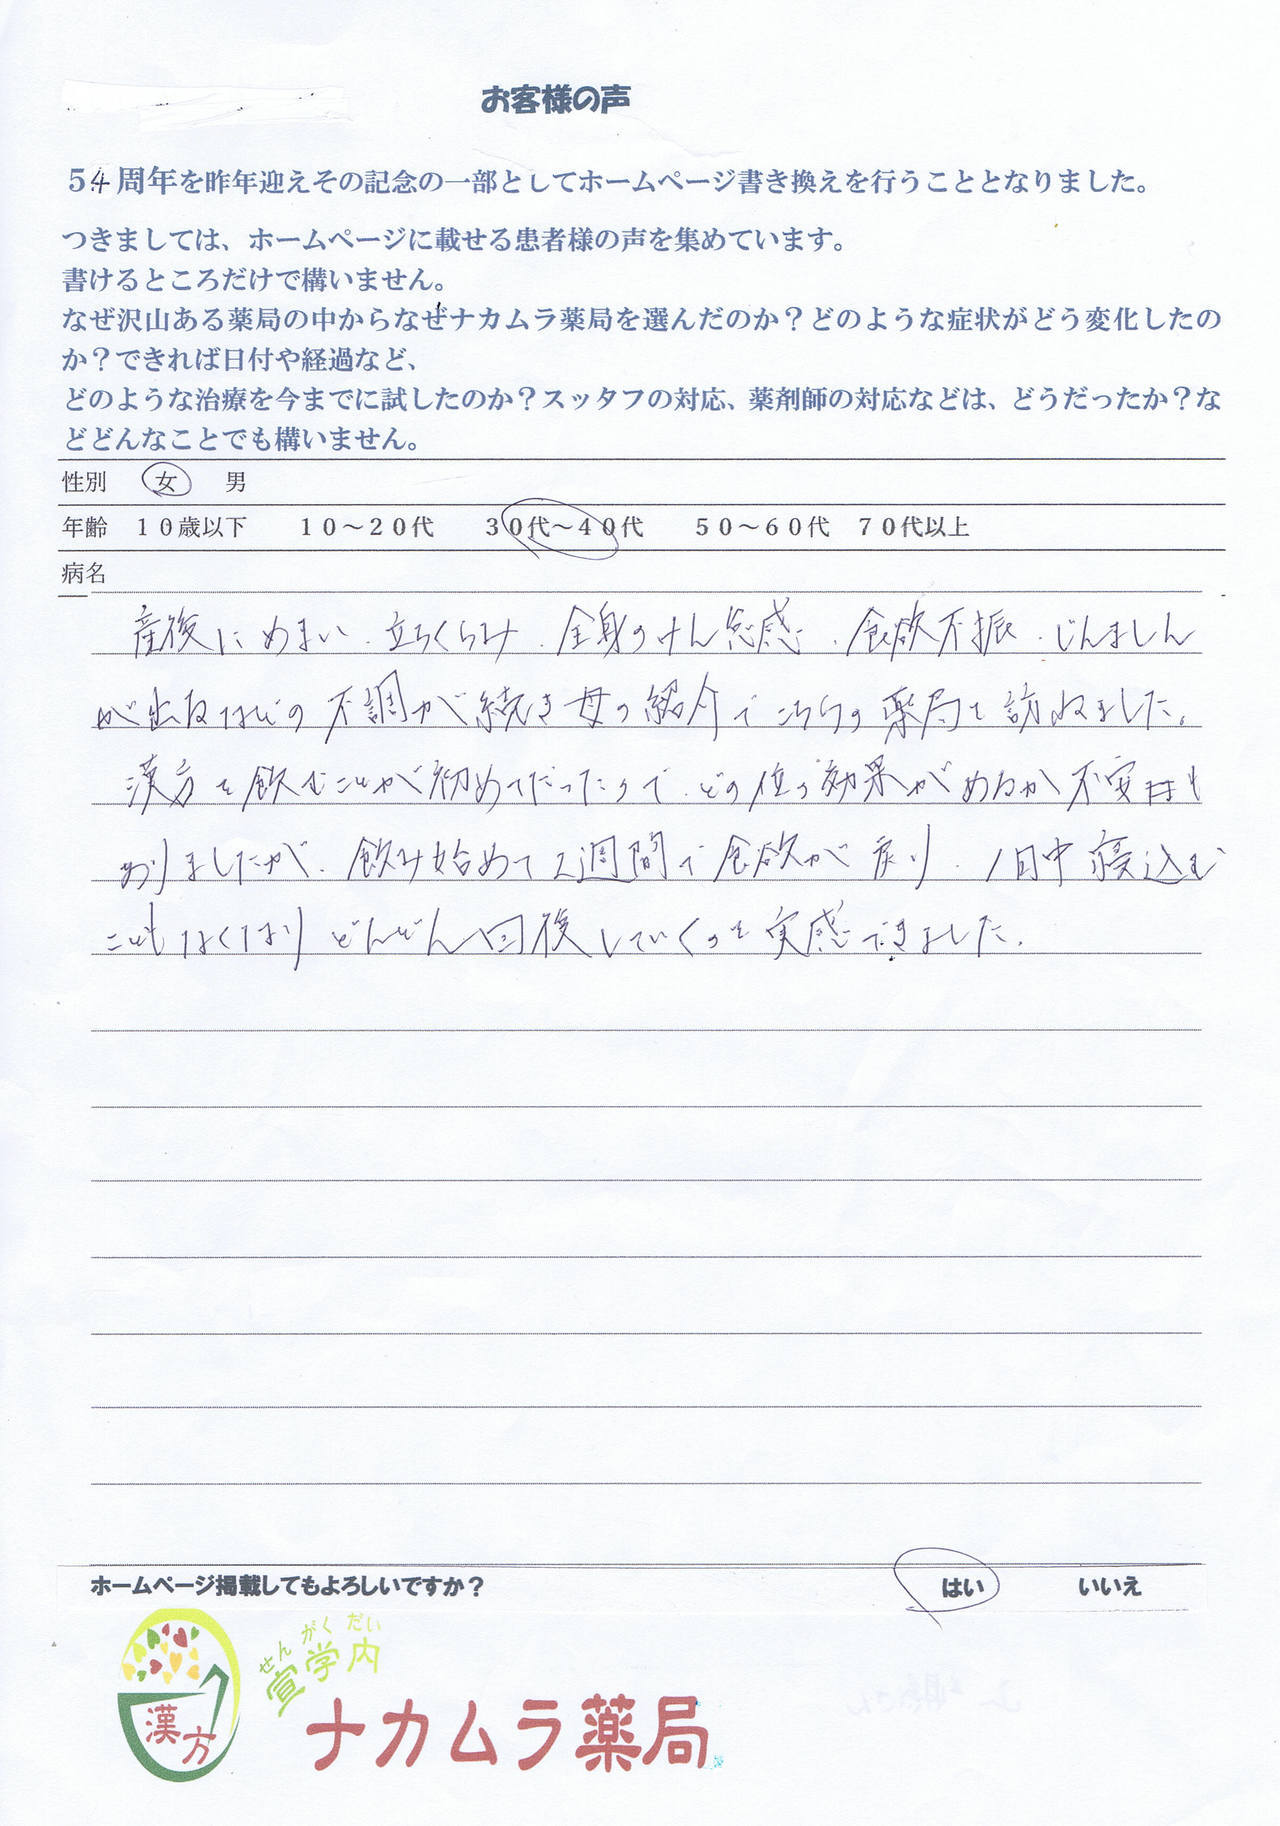 お客様の声
54周年を昨年迎えその記念の一部としてホームページ書き換えを行うこととなりました。
つきましては、ホームページに載せる患者様の声を集めています。
書けるところだけで構いません。
なぜ沢山ある薬局の中からなぜナカムラ薬局を選んだのか？どのような症状がどう変化したの
か？できれば日付や経過など、
どのような治療を今までに試したのか？スッタフの対応、薬剤師の対応などは、どうだったか？な
どどんなことでも構いません。
性別 女 男
年齢 １０歳以下 １０～２０代 ３０代～４０代 ５０～６０代 ７０代以上
病名
産後にめまい、立ちくらみ、全身のけん怠感、食欲不振、じんましん
が出るなどの不調が続き母の紹介でこちらの薬局を訪ねました。
漢方を飲むことが初めてだったので、どの位の効果があるか不安も
ありましたが、飲み始めて2週間で食欲が戻り、1日中寝込む
こともなくなりどんどん回復していくのを実感できました。
ホームページ掲載してもよろしいですか？ はい いいえ
せんがくだい
宣学内
漢方
ナカムラ薬局